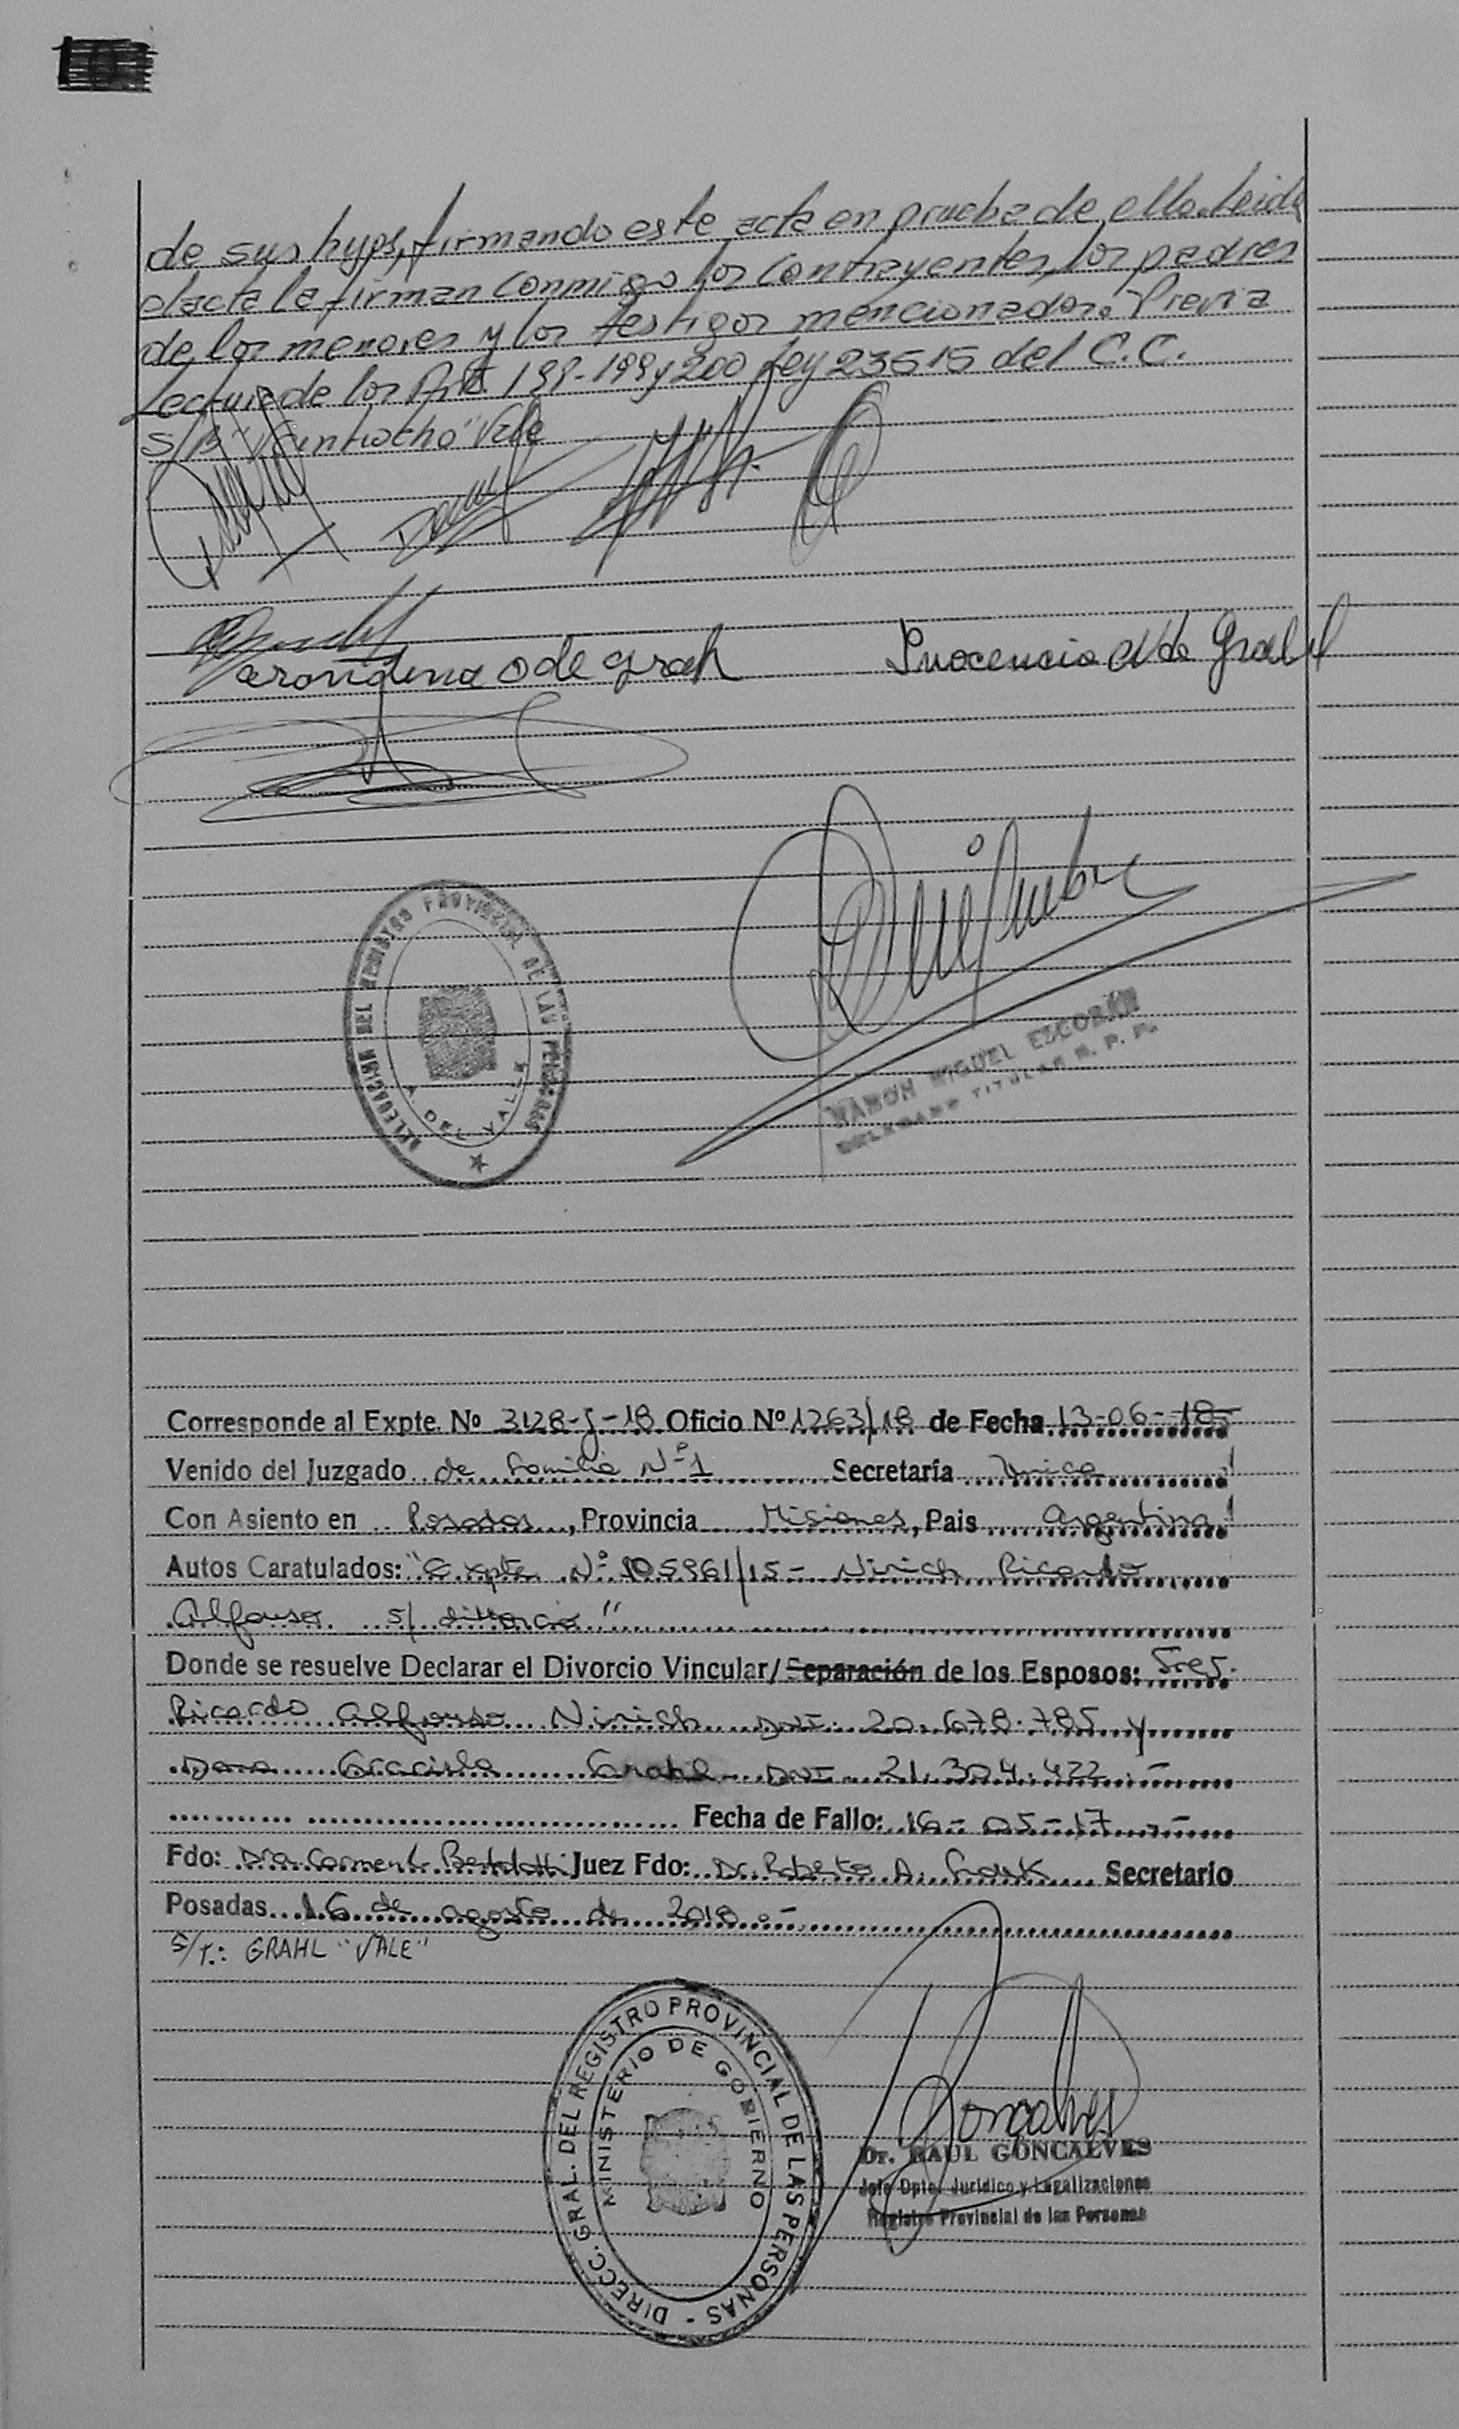 de sus hijos, firmando este acta en prueba de ello. Leida
el acta la firman conmigo los contrayentes, los padres
de los menores y los testigos mencionados. Previa
Lectura de los Art. 198-199 y 200 Ley 23515 del C.C.
S/B" Vale
de Grahl
Inocencia de Grahl
DELEGACION DEL REGISTRO PROVINCIAL DE LAS PERSONAS
A. DEL VALLE
RAMON MIGUEL ESCOBAR
DELEGADO TITULAR R. P. P.
Corresponde al Expte. Nº 3128-J-18 Oficio Nº 1263/18 de Fecha 13-06-18
Venido del Juzgado de Familia Nº1 Secretaría Unica
Con Asiento en Posadas, Provincia Misiones, Pais Argentina
Autos Caratulados: "Expte Nº 105961/15 - Nirich Ricardo
Alfonso s/ divorcio"
Donde se resuelve Declarar el Divorcio Vincular/Separación de los Esposos: Sres.
Ricardo Alfonso Nirich DNI 20.678.785 y
Dora Graciela Grahl DNI 21.304.422.-
Fecha de Fallo: 16-05-17.-
Fdo: Dra Carmen Juez Fdo: Dr. Roberto A. Secretario
Posadas 16 de agosto de 2018.-
S/T.: GRAHL "VALE"
DIRECC. GRAL. DEL REGISTRO PROVINCIAL DE LAS PERSONAS -
MINISTERIO DE GOBIERNO
Goncalves
Dr. RAUL GONCALVES
Jefe Dpto. Jurídico y Legalizaciones
Registro Provincial de las Personas